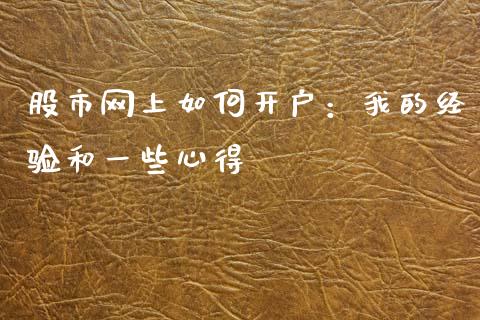 股市网上如何开户：我的经
验和一些心得